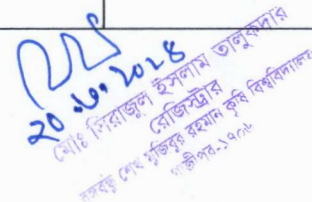 ২০.৬.২০২৪
মোঃ সিরাজুল ইসলাম তালুকদার
রেজিস্ট্রার
বঙ্গবন্ধু শেখ মুজিবুর রহমান কৃষি বিশ্ববিদ্যালয়
গাজীপুর-১৭০৬